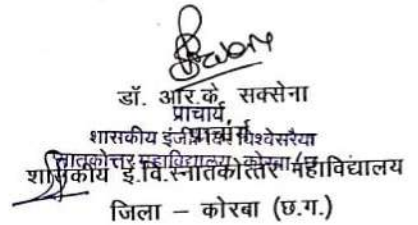 डॉ. आर.के. सक्सेना
प्राचार्य
प्राचार्य
शासकीय इंजी. विश्वेसरैया
स्नातकोत्तर महाविद्यालय, कोरबा
शासकीय इ.वि.स्नातकोत्तर महाविद्यालय
जिला – कोरबा (छ.ग.)